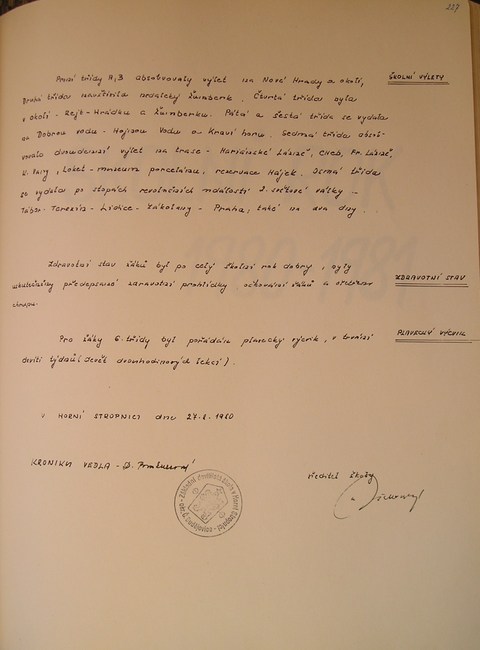 227
První třídy A, B absolvovaly výlet na Nové Hrady a okolí,
ŠKOLNÍ VÝLETY
Druhá třída navštívila městečky Žumberk. Čtvrtá třída byla
v okolí - Rejt-Hrádku a Žumberku. Pátá a šestá třída se vydala
na Dobrou vodu - Hojnou Vodu a Kraví horu. Sedmá třída absol-
vovala dvoudenní výlet na trase - Mariánské Lázně, Cheb, Fr. Lázně,
K. Vary, Loket - museum porcelánu, reservace Hájek. Osmá třída
se vydala po stopách revolučních událostí 2. světové války -
Tábor - Terezín - Lidice - Zákolany - Praha, také na dva dny.
Zdravotní stav žáků byl po celý školní rok dobrý, byly
ZDRAVOTNÍ STAV
uskutečněny předepsané zdravotní prohlídky, očkování žáků a ošetření
chrupu.
Pro žáky 6. třídy byl pořádán plavecký výcvik, v trvání
PLAVECKÝ VÝCVIK
devíti týdnů (devět dvouhodinových lekcí).
V HORNÍ STROPNICI dne 27.8. 1980
KRONIKU VEDLA - D.
ředitel školy